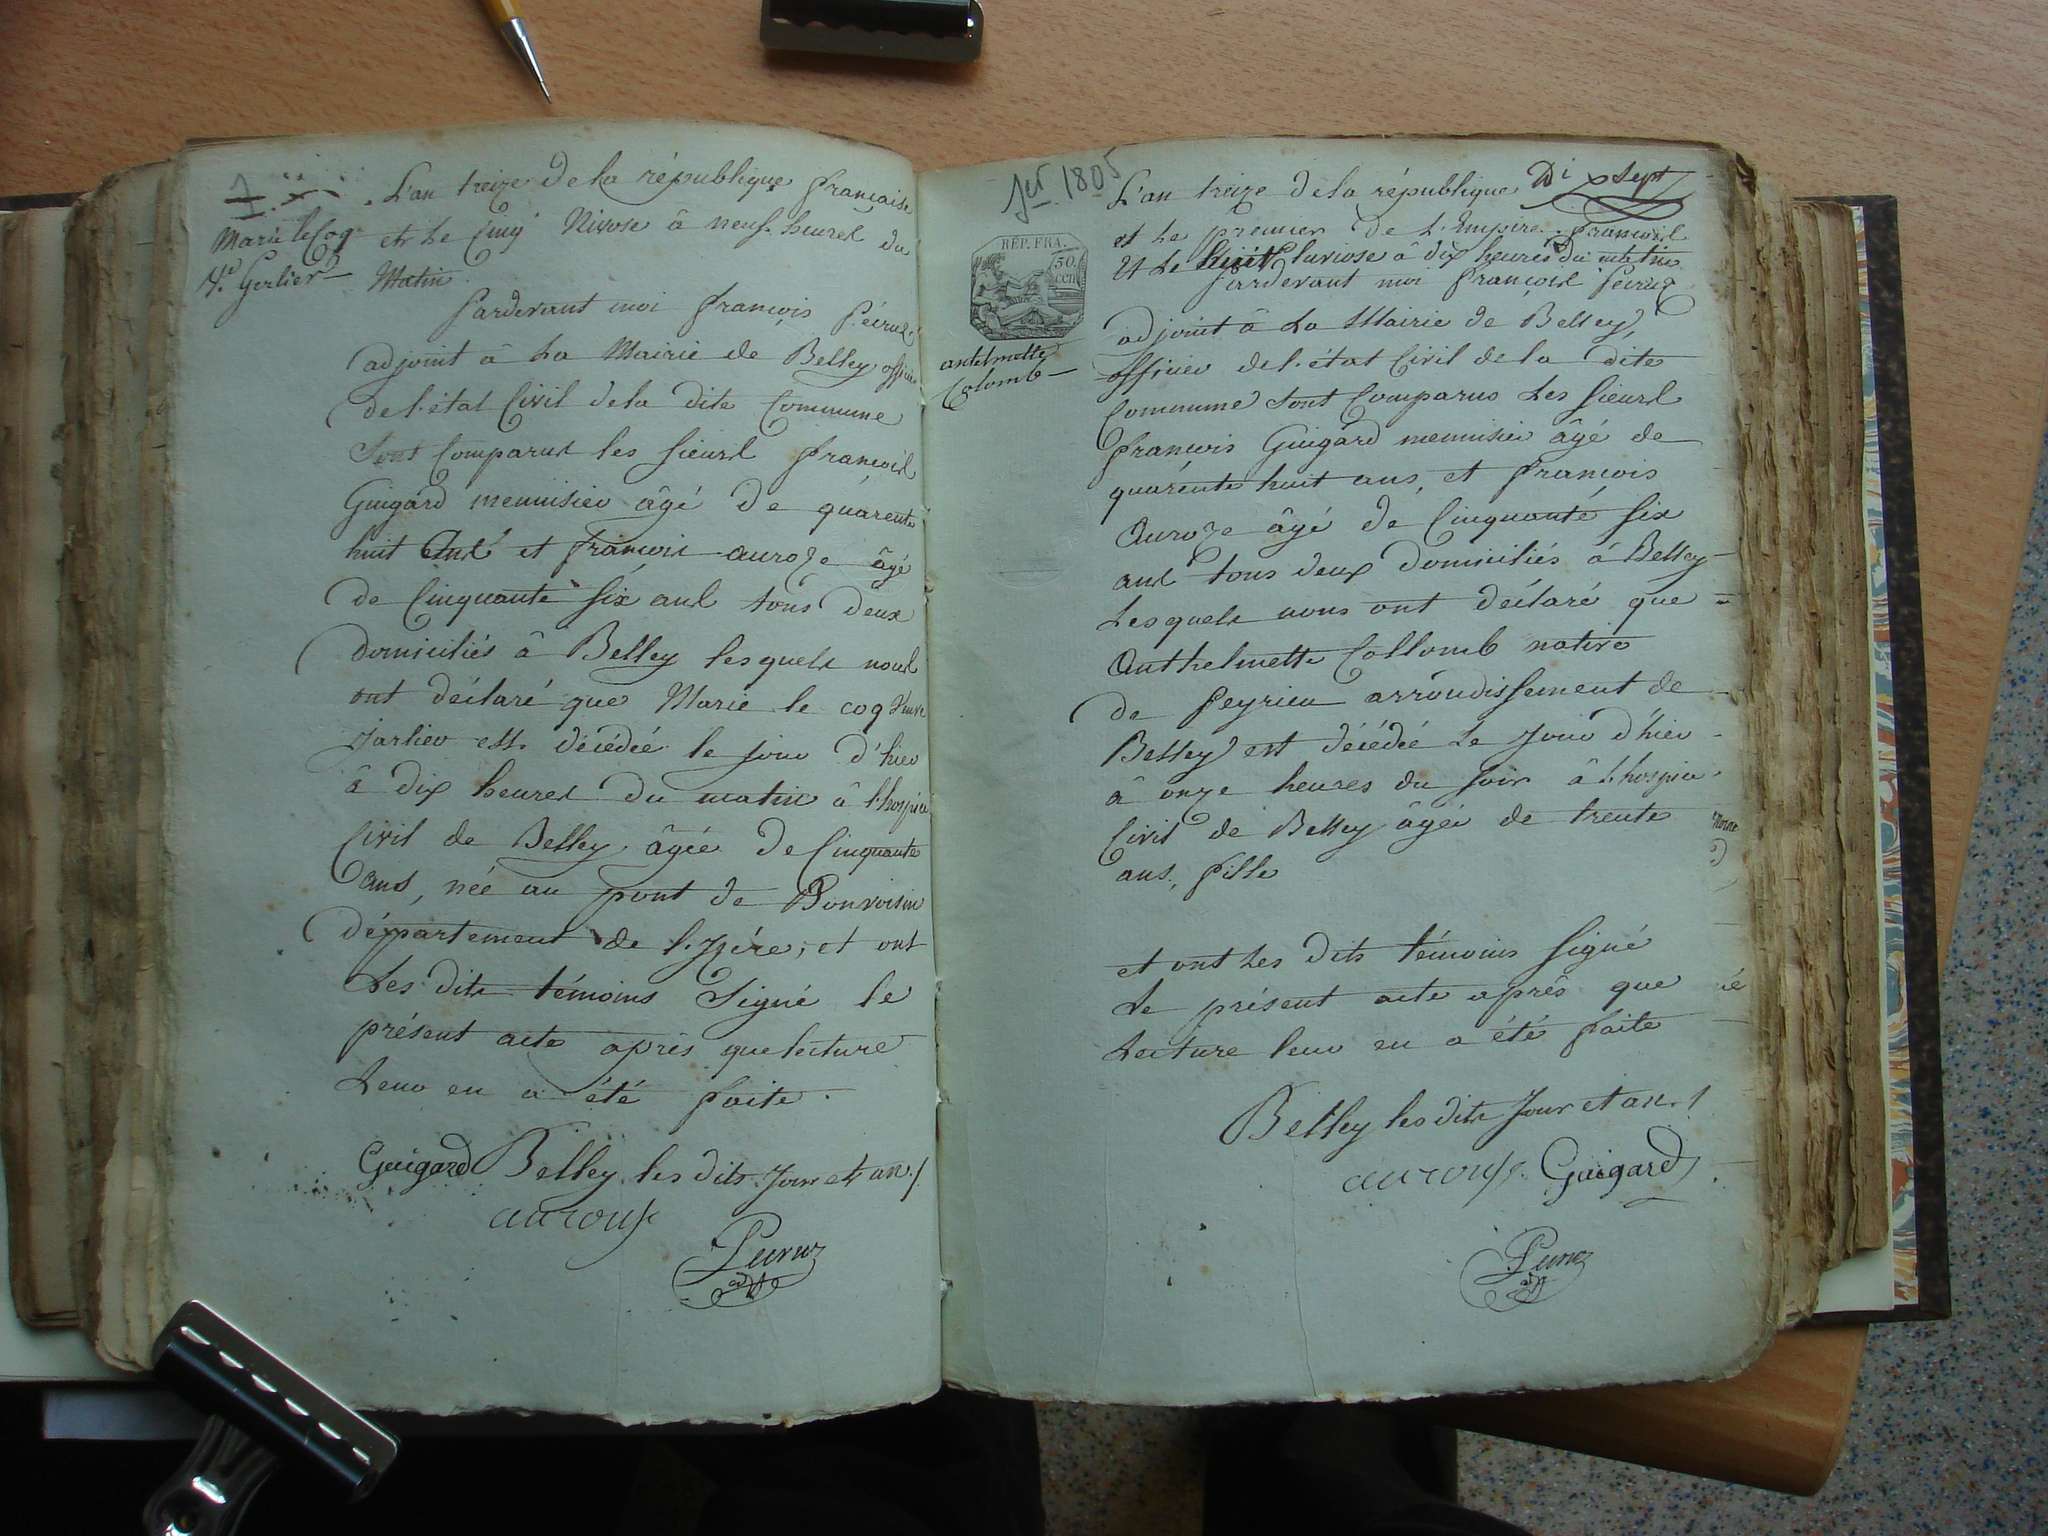 L'an treize de la république française
Marie le Coq
Ve Gerlier
et le cinq Nivose à neuf heures du
Matin
Pardevant moi françois Peiruz
adjoint à La Mairie de Belley officier
de l'état Civil de la dite Commune
Sont Comparus les sieurs françois
Guigard menuisier âgé de quarente
huit Ans et françois auroze âgé
de Cinquante six ans tous deux
domiciliés à Belley lesquels nous
ont déclaré que Marie le coq Veuve
Jarlier est décédée le jour d'hier
à dix heures du matin à l'hospice
Civil de Belley âgée de Cinquante
ans, née au pont de Bonvoisin
département de l'Izére, et ont
Les dits témoins Signé le
présent acte après que lecture
Leur en a été faite.
Guigard Belley les dits Jour et an
aurouse
Peiruz
adjt
Jer 1805
Di x sept
L'an treize de la république
et Le premier de L'Empire françois
RÉP. FRA.
50.
CEN
Et Le huit Pluviose à dix heures du matin
Pardevant moi françois Peiruz
adjoint à La Mairie de Belley,
antelmette
Colomb
officier de l'état Civil de la dite
Commune Sont Comparus Les sieurs
françois Guigard menuisier âgé de
quarente huit ans, et françois
Auroze âgé de Cinquante six
ans tous deux domiciliés à Belley
Lesquels nous ont déclaré que
Anthelmette Collomb native
de Peyrieu arrondissement de
Belley est décédée Le jour d'hier
à onze heures du soir à l'hospice
Civil de Belley âgée de trente
ans, fille
et ont Les dits témoins signé
Le présent acte après que
Lecture leur en a été faite
Belley les dits Jour et an
aurouse Guigard
Peiruz
adjt